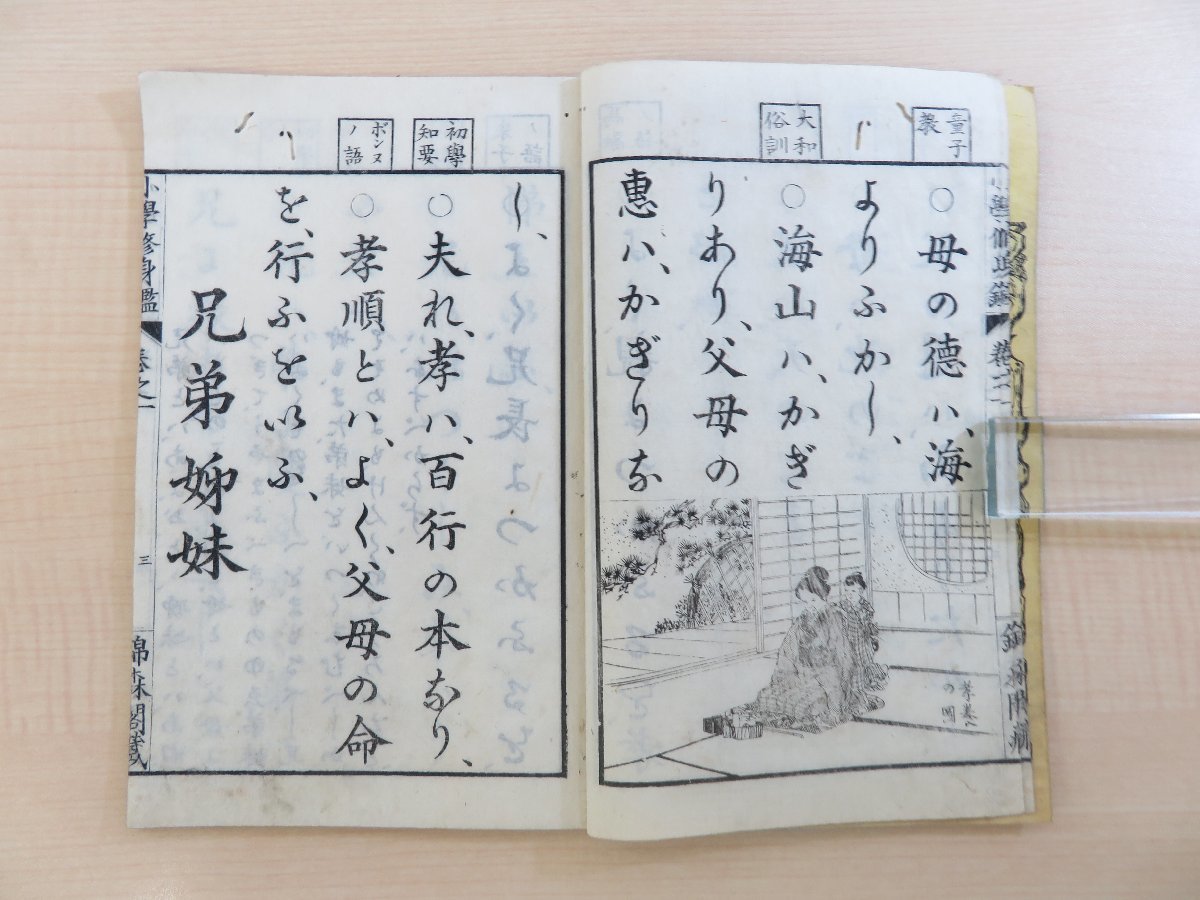 童子教
○母の徳ハ、海
よりふかし、
大和俗訓
○海山ハ、かぎ
りあり、父母の
恵ハ、かぎりな
し、
初學知要
○夫れ、孝ハ、百行の本なり、
ボンヌノ語
○孝順とハ、よく、父母の命
を、行ふをいふ、
兄弟姉妹
小學修身鑑
巻之一
三
錦森閣藏